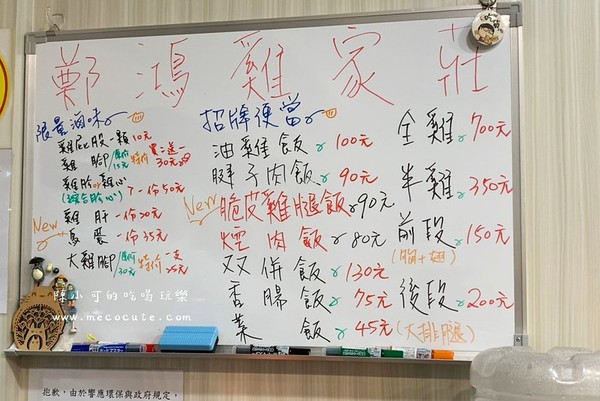 鄭鴻雞家莊
限量滷味
雞屁股一顆10元
雞腳 原價15元 特價 買二送一 30元
雞胗or雞心 7 一份50元
(綜合胗心)
雞肝 一份30元
New
一份35元
大雞腳 原價30元 特價 一支25元
招牌便當
油雞飯 100元
胖子肉飯 90元
New 脆皮雞腿飯 90元
煙肉飯 80元
双併飯 130元
香腸飯 75元
菜飯 45元
全雞 700元
半雞 350元
前段 150元
(胸+翅)
後段 200元
(大排腿)
陳小可的吃喝玩樂
www.mecocute.com
抱歉,由於響應環保與政府規定,